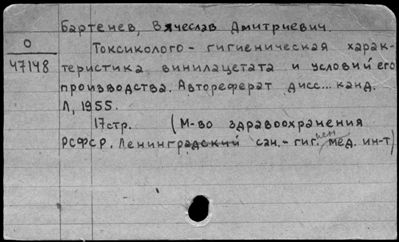 Бартенев, Вячеслав Дмитриевич.
О
47148
Токсиколого-гигиеническая харак-
теристика винилацетата и условий его
производства. Автореферат дисс... канд.
Л, 1955.
17стр. (М-во здравоохранения
РСФСР. Ленинградский сан.-гиг. мед. ин-т)